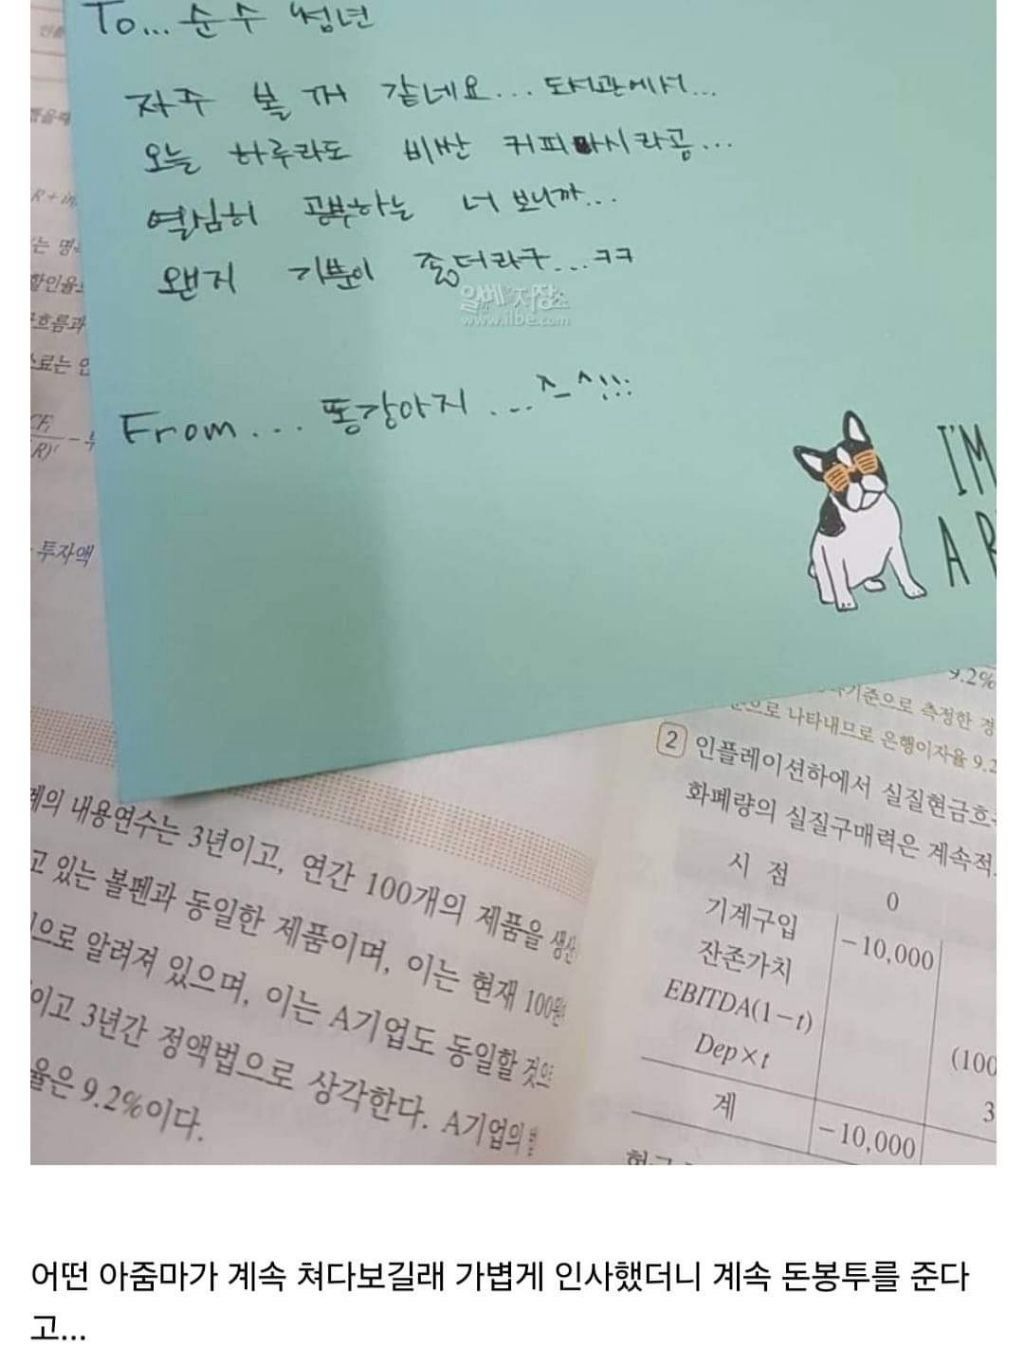 To... 순수 청년
자주 볼 꺼 같네요... 도서관에서...
오늘 하루라도 비싼 커피마시라곰...
열심히 공부하는 너 보니까...
왠지 기분이 좋더라구...ㅋㅋ
일베저장소
www.ilbe.com
From... 똥강아지 ...^_^!!!
I'M
A
투자액
9.2%
기준으로 측정한 경
으로 나타내므로 은행이자율 9.2
2 인플레이션하에서 실질현금흐
화폐량의 실질구매력은 계속적
시 점 0
기계구입 -10,000
잔존가치
EBITDA(1-t) (100
Dep×t 3
계 -10,000
의 내용연수는 3년이고, 연간 100개의 제품을 생산
고 있는 볼펜과 동일한 제품이며, 이는 현재 100원
으로 알려져 있으며, 이는 A기업도 동일할 것으
이고 3년간 정액법으로 상각한다. A기업의
율은 9.2%이다.
어떤 아줌마가 계속 쳐다보길래 가볍게 인사했더니 계속 돈봉투를 준다
고...